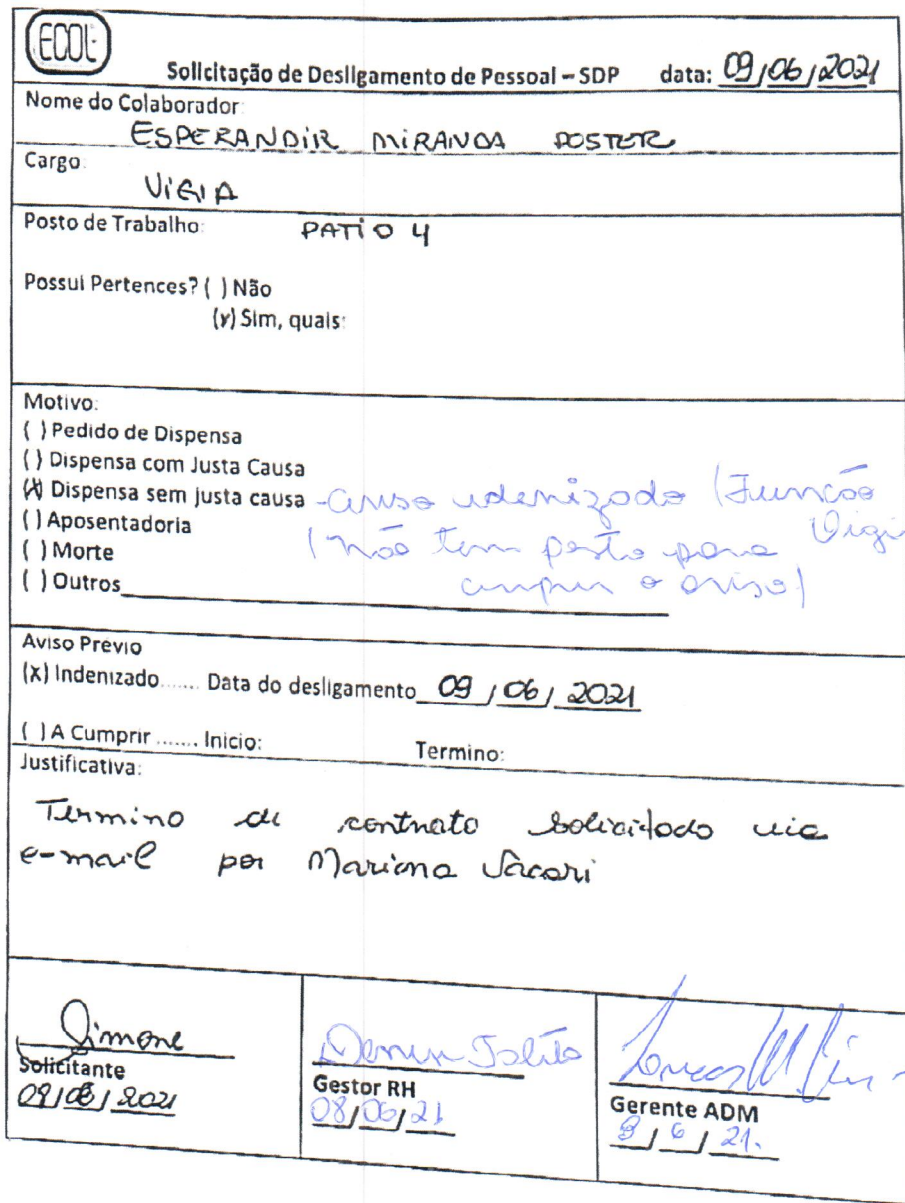 ECOL
Solicitação de Desligamento de Pessoal – SDP data: 09/06/2021
Nome do Colaborador:
ESPERANDIR MIRANDA POSTER
Cargo:
VIGIA
Posto de Trabalho: PATIO 4
Possui Pertences? ( ) Não
(x) Sim, quais:
Motivo:
( ) Pedido de Dispensa
( ) Dispensa com Justa Causa
(X) Dispensa sem justa causa - aviso idenizado (Função
( ) Aposentadoria Vigi
( ) Morte (não tem posto para
( ) Outros cumprir o aviso)
Aviso Prévio
(x) Indenizado....... Data do desligamento 09 / 06 / 2021
( ) A Cumprir ....... Inicio: Termino:
Justificativa:
Termino de contrato solicitado via
e-mail por Mariana Vacari
Simone
Solicitante
Gestor RH
08/06/21
Gerente ADM
/ 6 / 21.